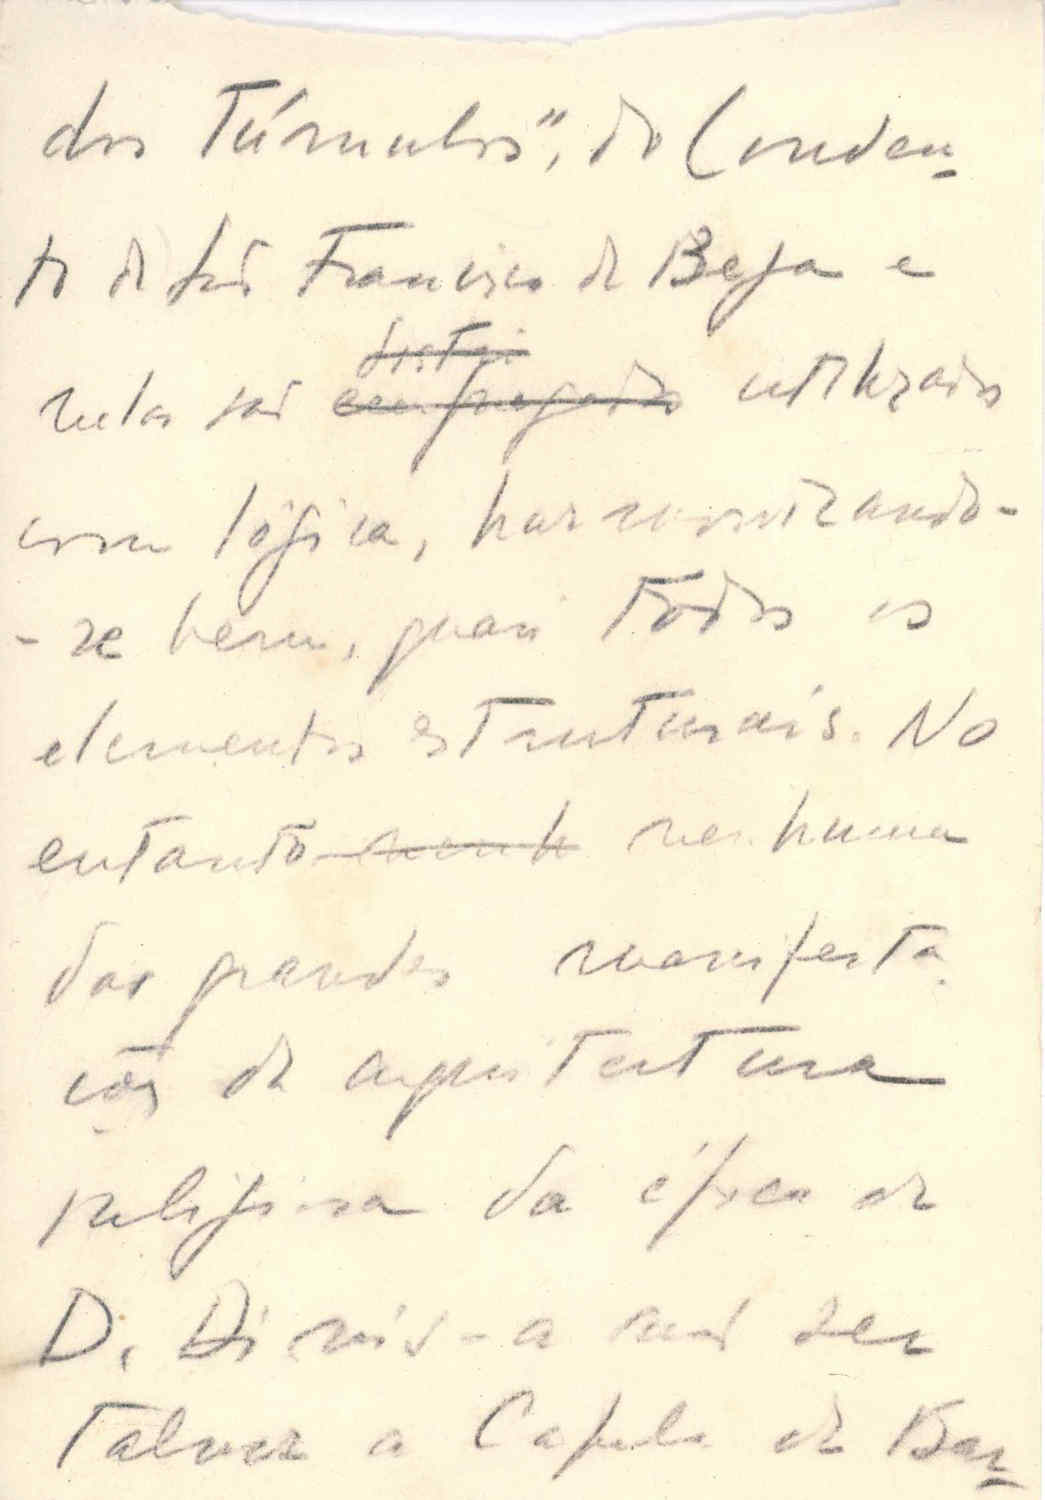 dos Túmulos", do Conven
to de São Francisco de Beja e
nelas são empregados utilizados
com lógica, harmonizando-
-se bem, quasi todos os
elementos estruturais. No
entanto nenh nenhuma
das grandes manifesta
ções da arquitectura
religiosa da época de
D. Dinis - a não ser
talvez a Capela de Bar